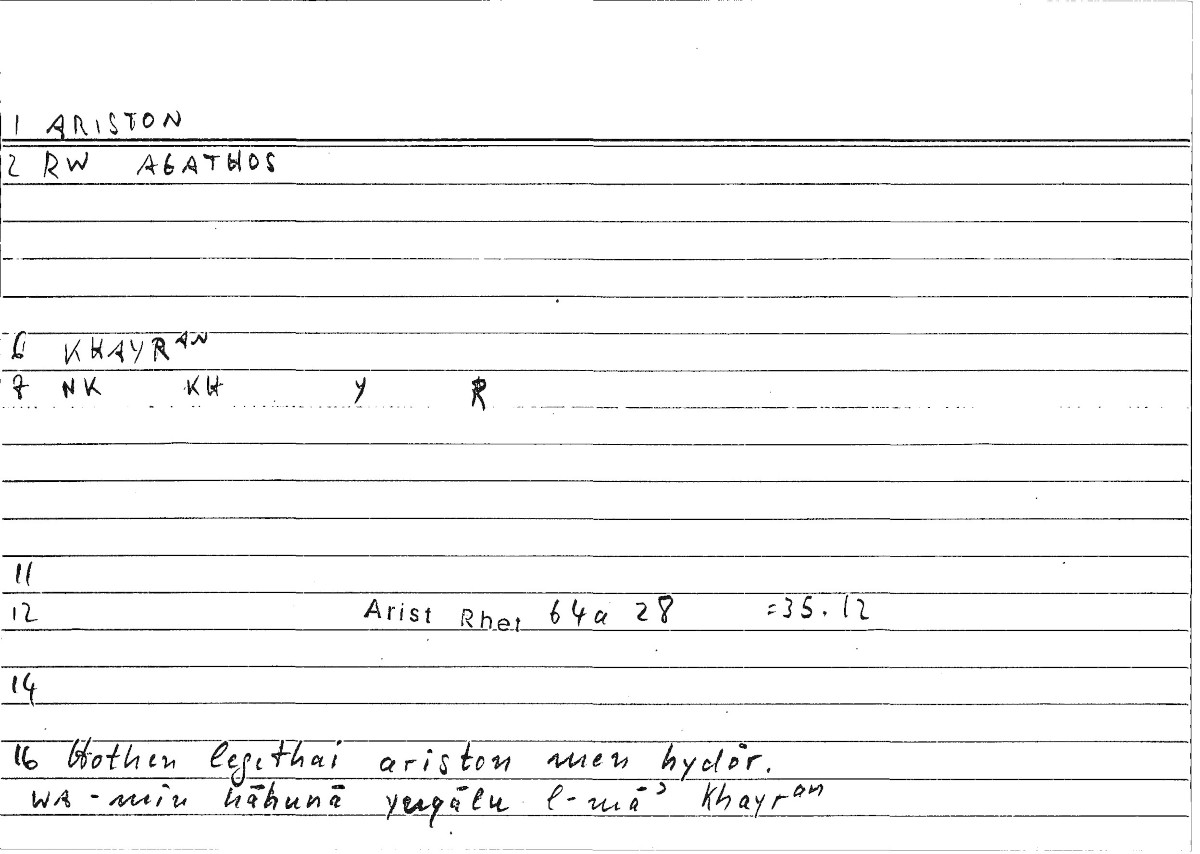 1 ARISTON
2 RW AGATHOS
6 KHAYRᴬᴺ
7 NK KH Y R
11
12 Arist Rhet 64a 28 =35.12
14
16 Hothen legethai ariston men hydōr.
WA-min hāhunā yuqālu l-māʾ khayrᵃⁿ